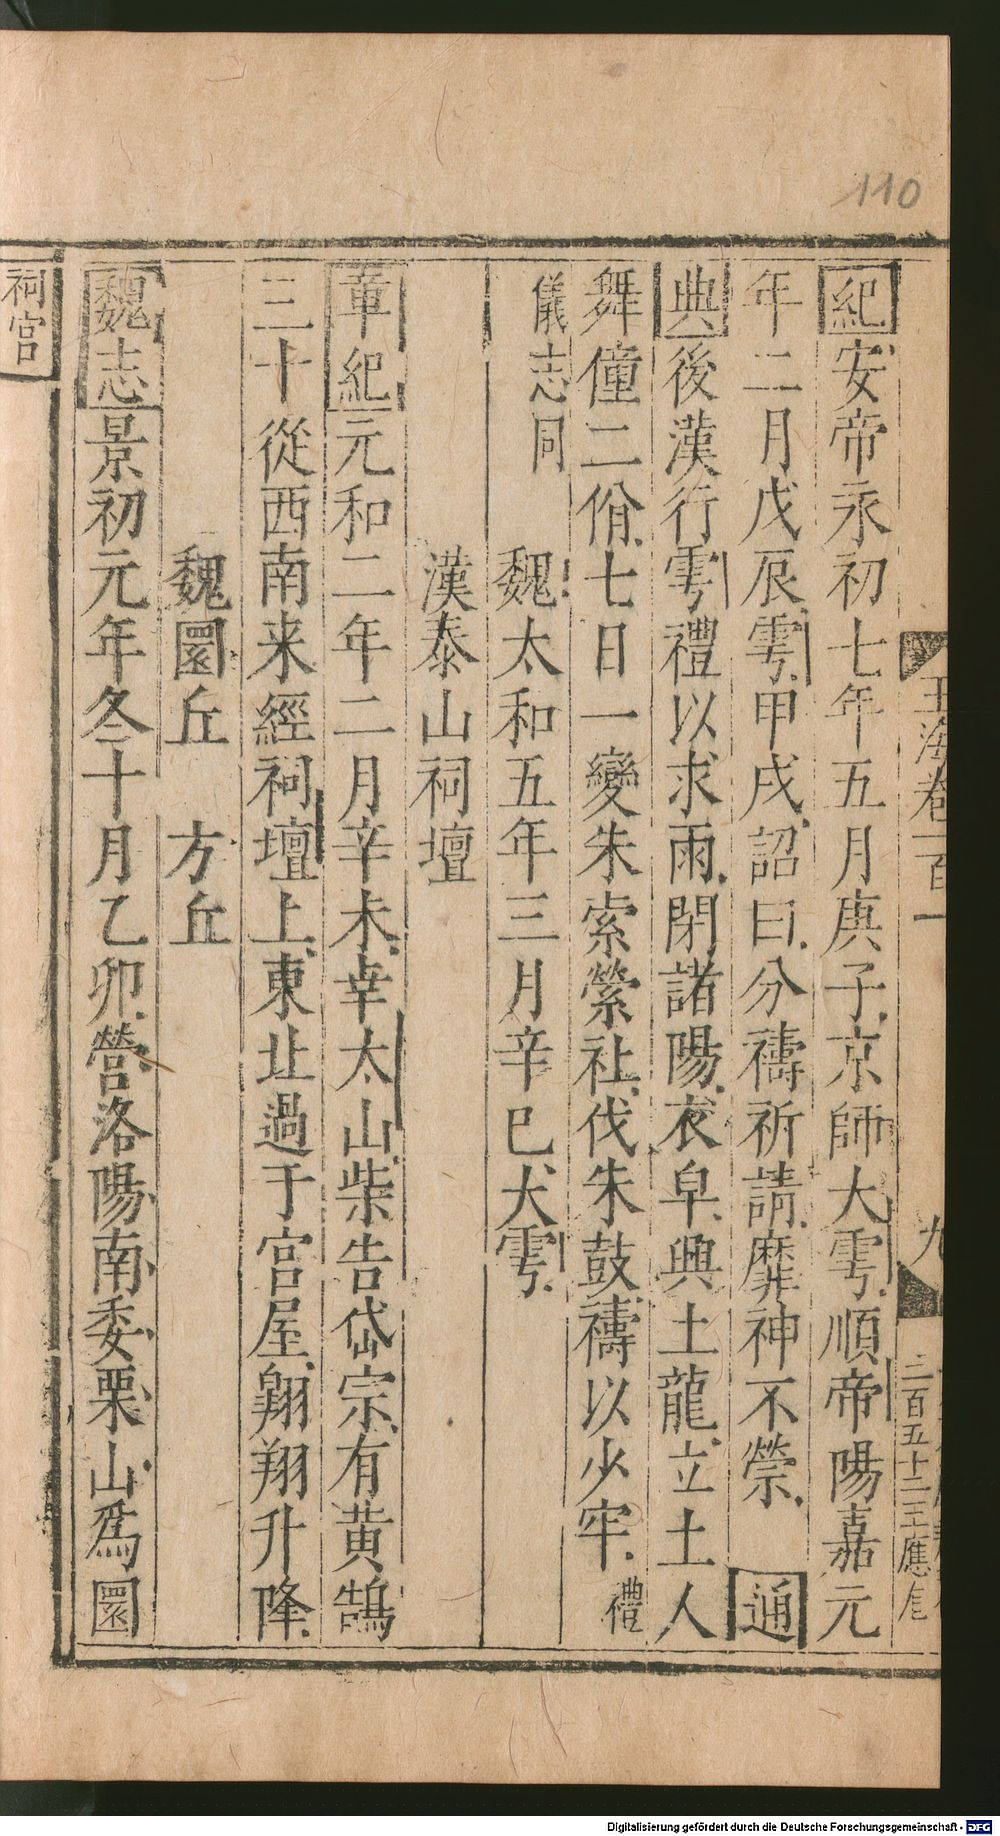 110
玉海卷一百一 九
二百五十二 王應
紀安帝永初七年五月庚子京師大雩順帝陽嘉元
年二月戊辰雩甲戌詔曰分禱祈請靡神不禜 通
典後漢行雩禮以求雨閉諸陽衣皁興土龍立土人
舞僮二佾七日一變朱索縈社伐朱鼓禱以少牢 禮
儀志同 魏太和五年三月辛巳大雩
漢泰山祠壇
章紀元和二年二月辛未幸太山柴告岱宗有黄鵠
三十從西南来經祠壇上東北過于宮屋翱翔升降
魏圜丘 方丘
魏志景初元年冬十月乙卯營洛陽南委粟山爲圜
祠宮
Digitalisierung gefördert durch die Deutsche Forschungsgemeinschaft - DFG